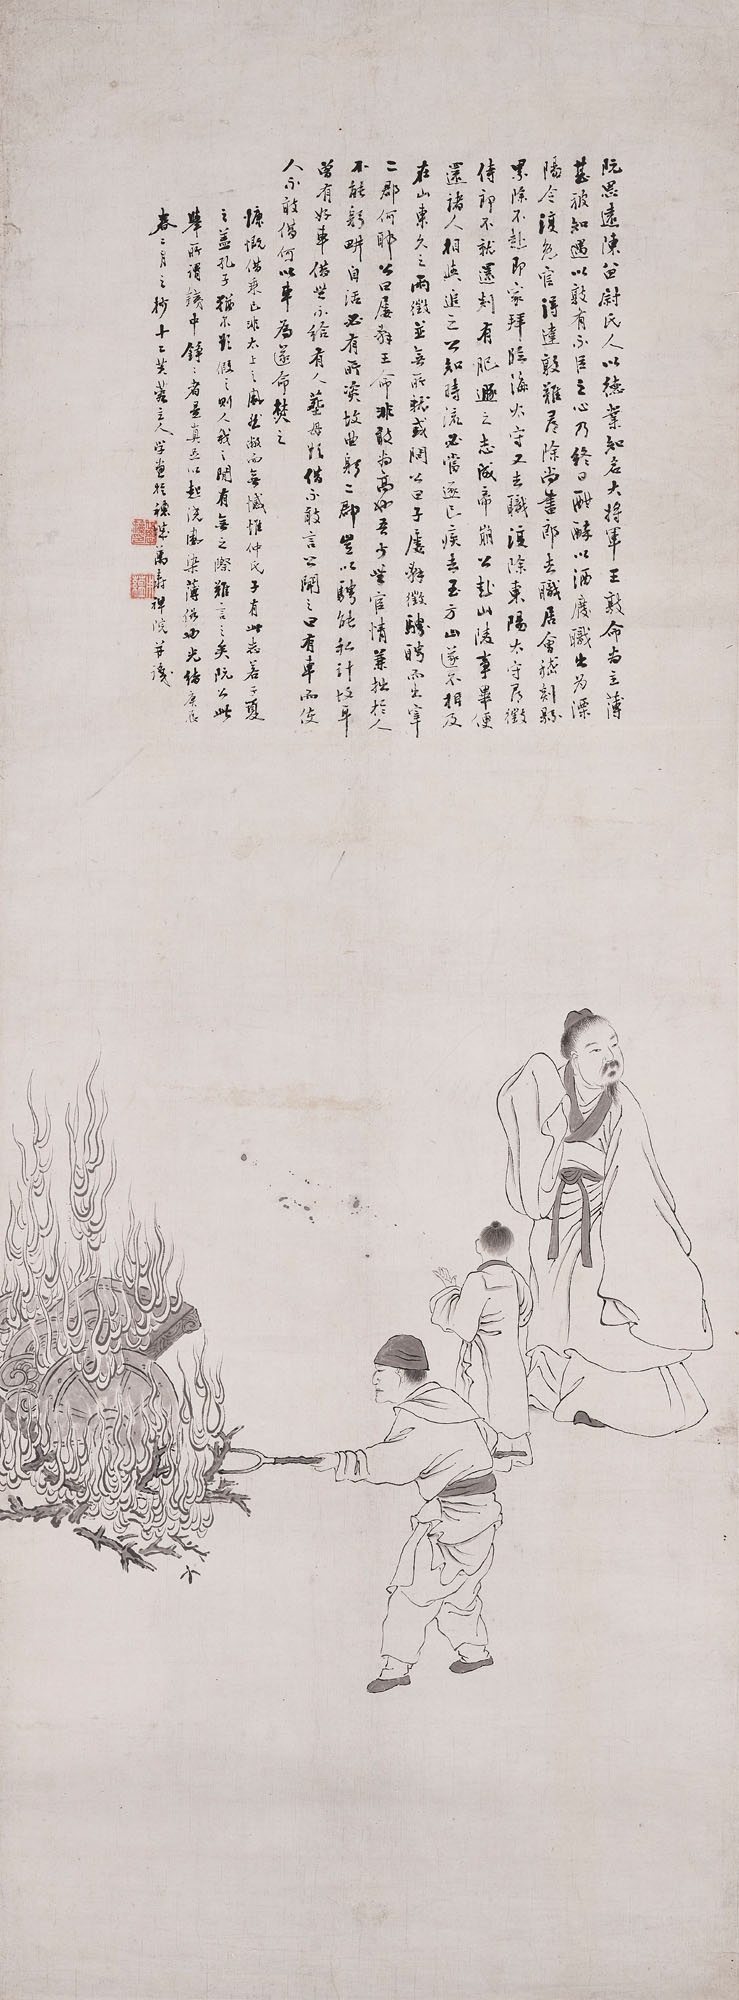 阮思遠陳留尉氏人以德業知名大將軍王敦命為主薄
甚被知遇以敦有不臣之心乃終日酣醉以酒廢職出為溧
陽令復免官得違敦難尋除尚書郎去職居會稽剡縣
累除不赴即家拜臨海太守又去職復除東陽太守尋徵
侍郎不就還剡有肥遯之志成帝崩公赴山陵事畢便
還諸人相與追之公知時流必當逐己疾去至方山遂不相及
在山東久之兩徵並無所就或問公曰子屢辭徵聘而出宰
二郡何耶公曰屢辭王命非敢為高也吾少無官情兼拙於人
不能躬畊自活必有所資故曲躬二郡豈以騁能私計故耳
曾有好車借無不給有人葬母欲借不敢言公聞之曰有車而使
人不敢借何以車為遂命焚之
慷慨借乘已非太上之風然敝而無憾惟仲氏子有此志若子夏
之蓋孔子猶不欲假之則人我之閒有無之際難言之矣阮公此
舉所謂鐵中錚錚者是真足以起澆風染薄俗也光緒庚辰
春二月之抄十二芙蓉主人學畫於禾城萬壽禪院并識